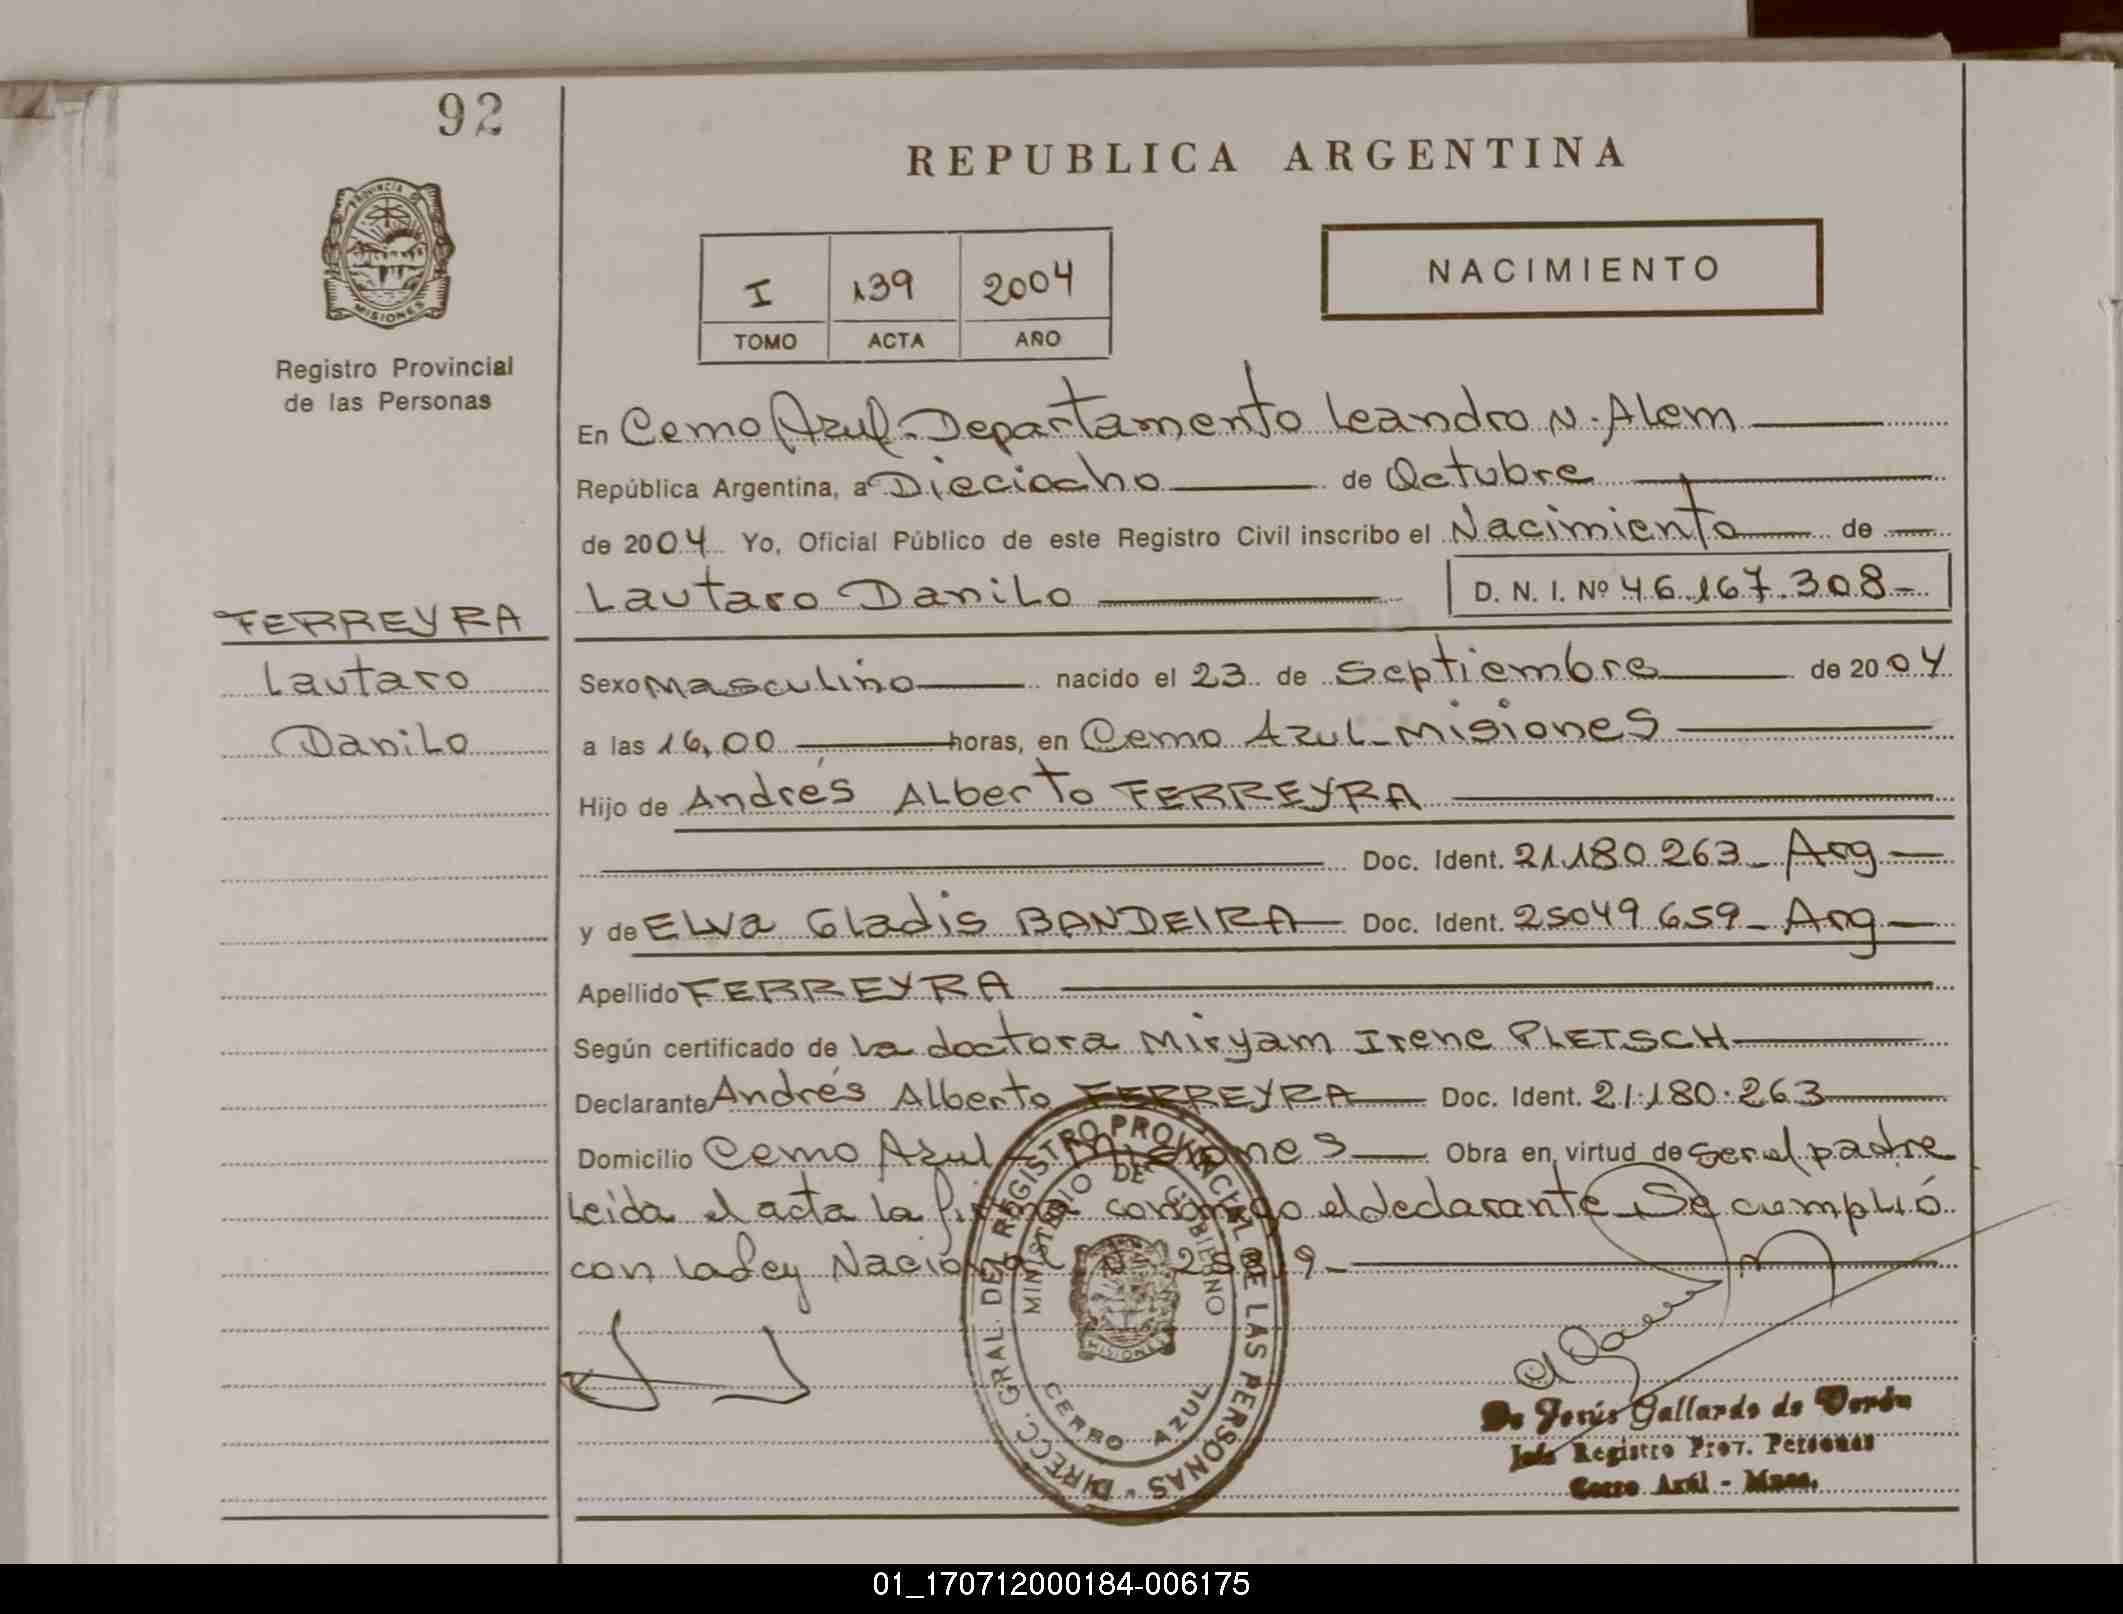 92
REPUBLICA ARGENTINA
PROVINCIA DE
MISIONES
Registro Provincial
de las Personas
I 139 2004
TOMO ACTA AÑO
NACIMIENTO
En Cerro Azul - Departamento Leandro N. Alem
República Argentina, a Dieciocho de Octubre
de 2004 Yo, Oficial Público de este Registro Civil inscribo el Nacimiento de
Lautaro Danilo D. N. I. Nº 46.167.308-
FERREYRA
Lautaro
Danilo
Sexo Masculino nacido el 23 de Septiembre de 2004
a las 16,00 horas, en Cerro Azul - Misiones
Hijo de Andrés Alberto FERREYRA
Doc. Ident. 21.180.263 - Arg
y de Elva Gladis BANDEIRA Doc. Ident. 25049.659 - Arg
Apellido FERREYRA
Según certificado de La doctora Miryam Irene PLETSCH
Declarante Andrés Alberto FERREYRA Doc. Ident. 21.180.263
Domicilio Cerro Azul - Misiones Obra en virtud de ser el padre
Leída el acta la firma conmigo el declarante. Se cumplió
con la Ley Nacional
DIRECC. GRAL. DEL REGISTRO PROVINCIAL DE LAS PERSONAS -
MINISTERIO DE GOBIERNO
MISIONES
CERRO AZUL
De Jesús Gallardo de Verón
Jefe Registro Prov. Personas
Cerro Azúl - Mnes.
01_170712000184-006175